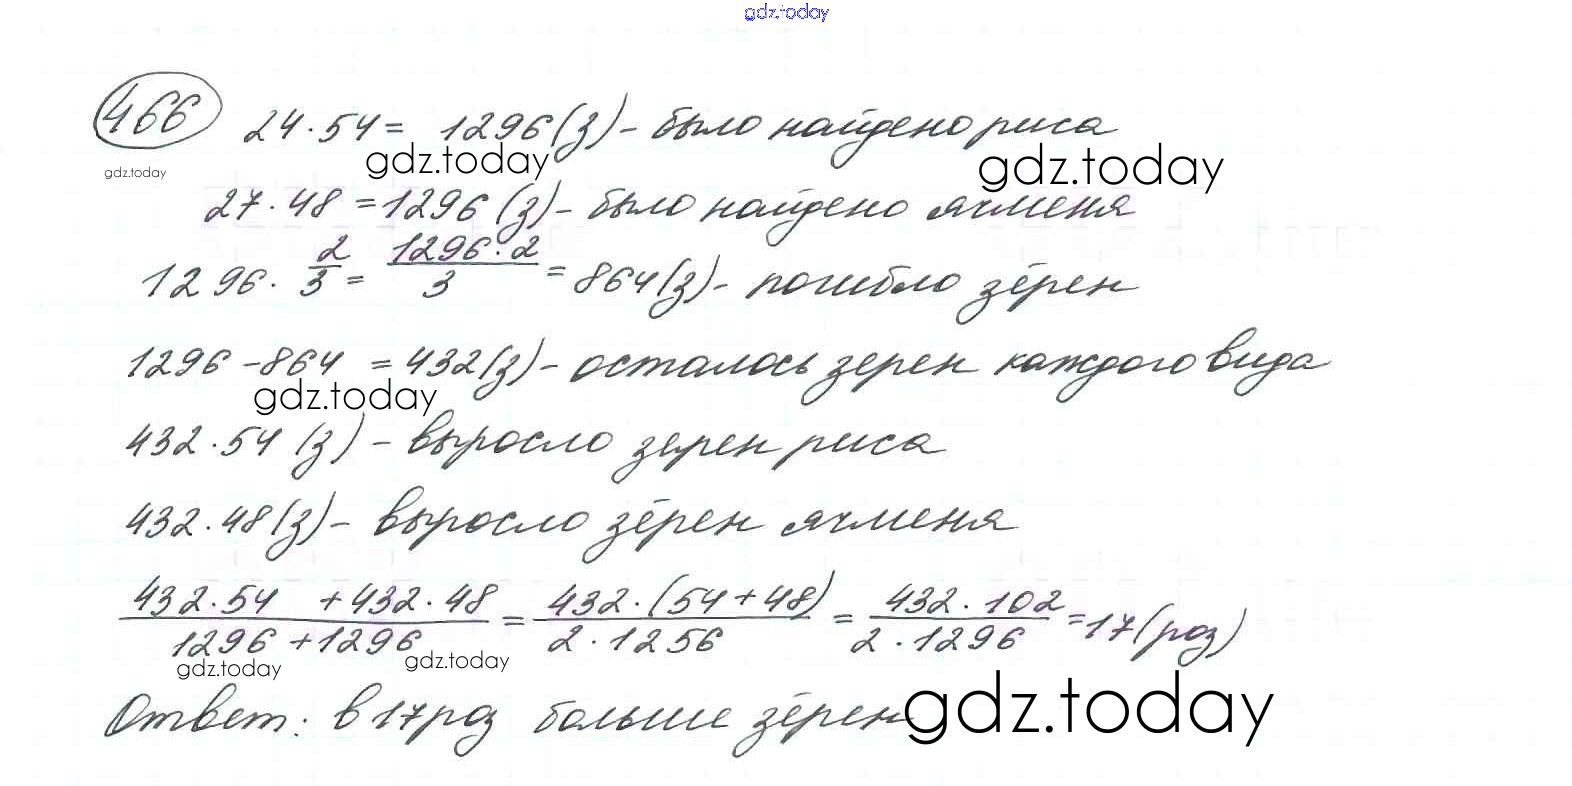 gdz.today
466 24·54= 1296(з)- было найдено риса
gdz.today gdz.today gdz.today
27·48 =1296 (з)- было найдено ячменя
1296· 2/3 = 1296·2/3 = 864(з)- погибло зёрен
1296-864 =432(з)- осталось зерен каждого вида
gdz.today
432·54 (з) - выросло зерен риса
432·48(з)- выросло зёрен ячменя
432·54 +432·48/1296+1296 = 432·(54+48)/2·1256 = 432·102/2·1296 =17(роз)
gdz.today gdz.today
Ответ: в 17 роз больше зёрен
gdz.today